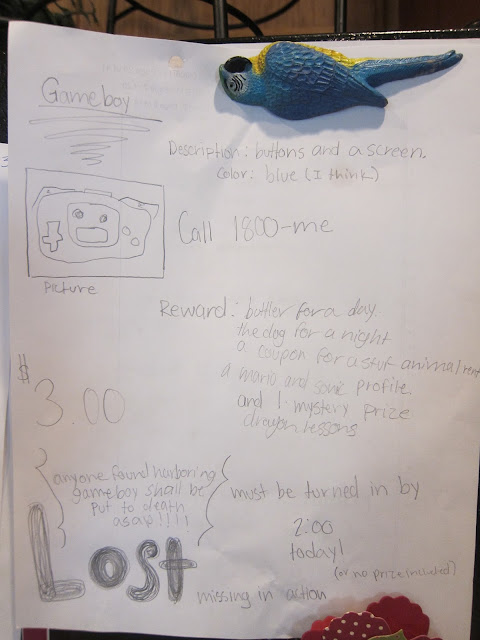 Gameboy
Description: buttons and a screen.
Color: blue (I think)
Call 1800-me
Picture
Reward: butler for a day.
the dog for a night
a coupon for a stuf animal rent
a mario and sonic profile.
and 1 mystery prize
dragon lessons
$3.00
anyone found harboring
gameboy shall be
put to death
asap!!!!
must be turned in by
2:00
today!
(or no prize included)
Lost
missing in action